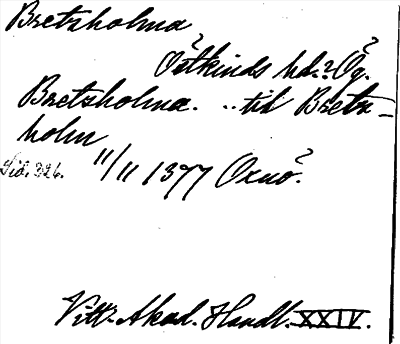 Bretzholma
Östkinds hd.? Ög.
Bretzholma. .. til Bretz-
holm
Sid. 326. 11/11 1377 Oxnö?.
Vitt. Akad. Handl. XXIV.